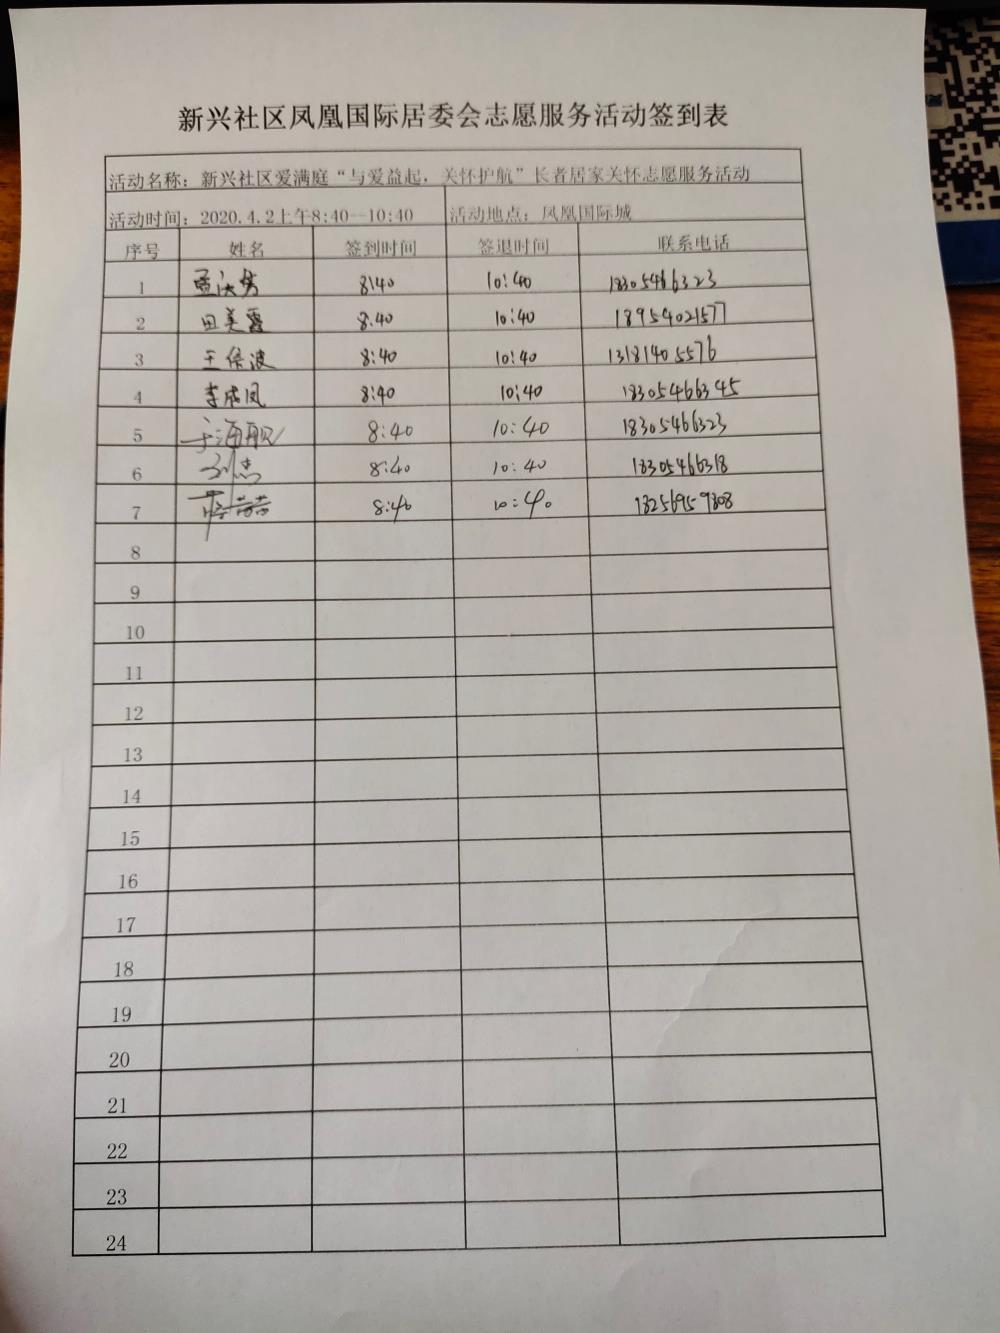 新兴社区凤凰国际居委会志愿服务活动签到表
活动名称：新兴社区爱满庭“与爱益起，关怀护航”长者居家关怀志愿服务活动
活动时间：2020.4.2上午8:40--10:40 活动地点：凤凰国际城
序号 姓名 签到时间 签退时间 联系电话
1 8:40 10:40 18305466323
2 田美霞 8:40 10:40 18954021577
3 王保波 8:40 10:40 13181405576
4 李成凤 8:40 10:40 18305466345
5 于海舰 8:40 10:40 18305466323
6 刘杰 8:40 10:40 18305466318
7 8:40 10:40 18256959808
8
9
10
11
12
13
14
15
16
17
18
19
20
21
22
23
24